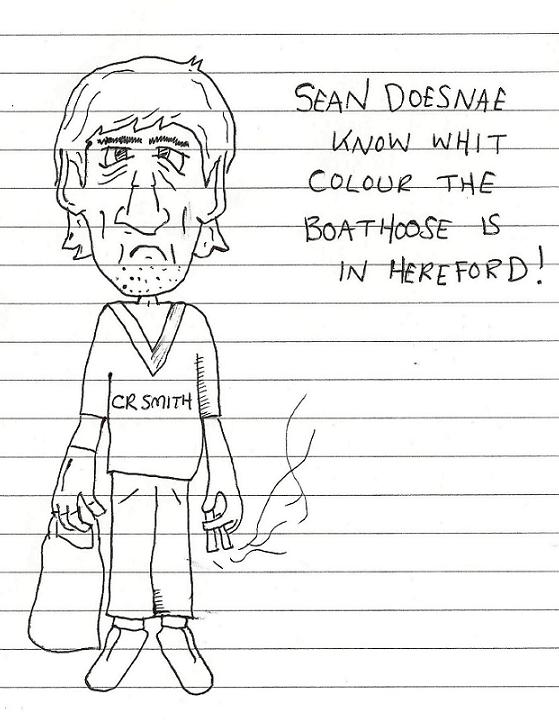 SEAN DOESNAE
KNOW WHIT
COLOUR THE
BOATHOOSE IS
IN HEREFORD!
CR SMITH